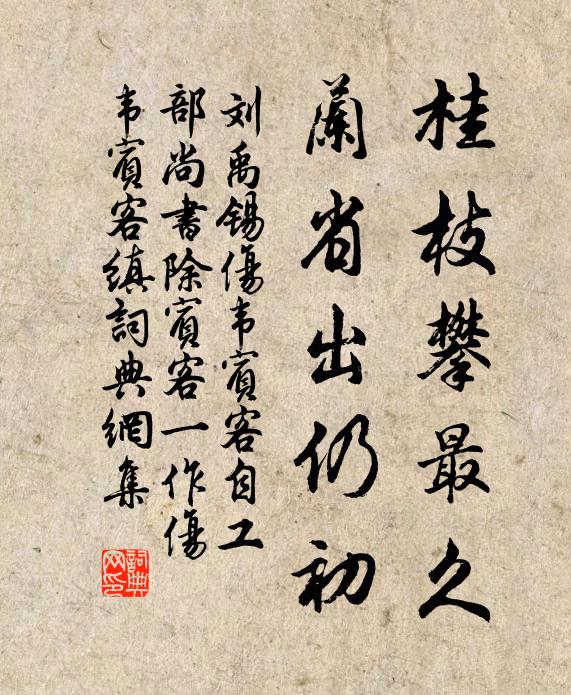 桂枝攀最久
蘭省出仍初
刘禹锡傷韦賓客自工
部尚書除賓客一作傷
韦賓客縝詞典網集
詞典网印